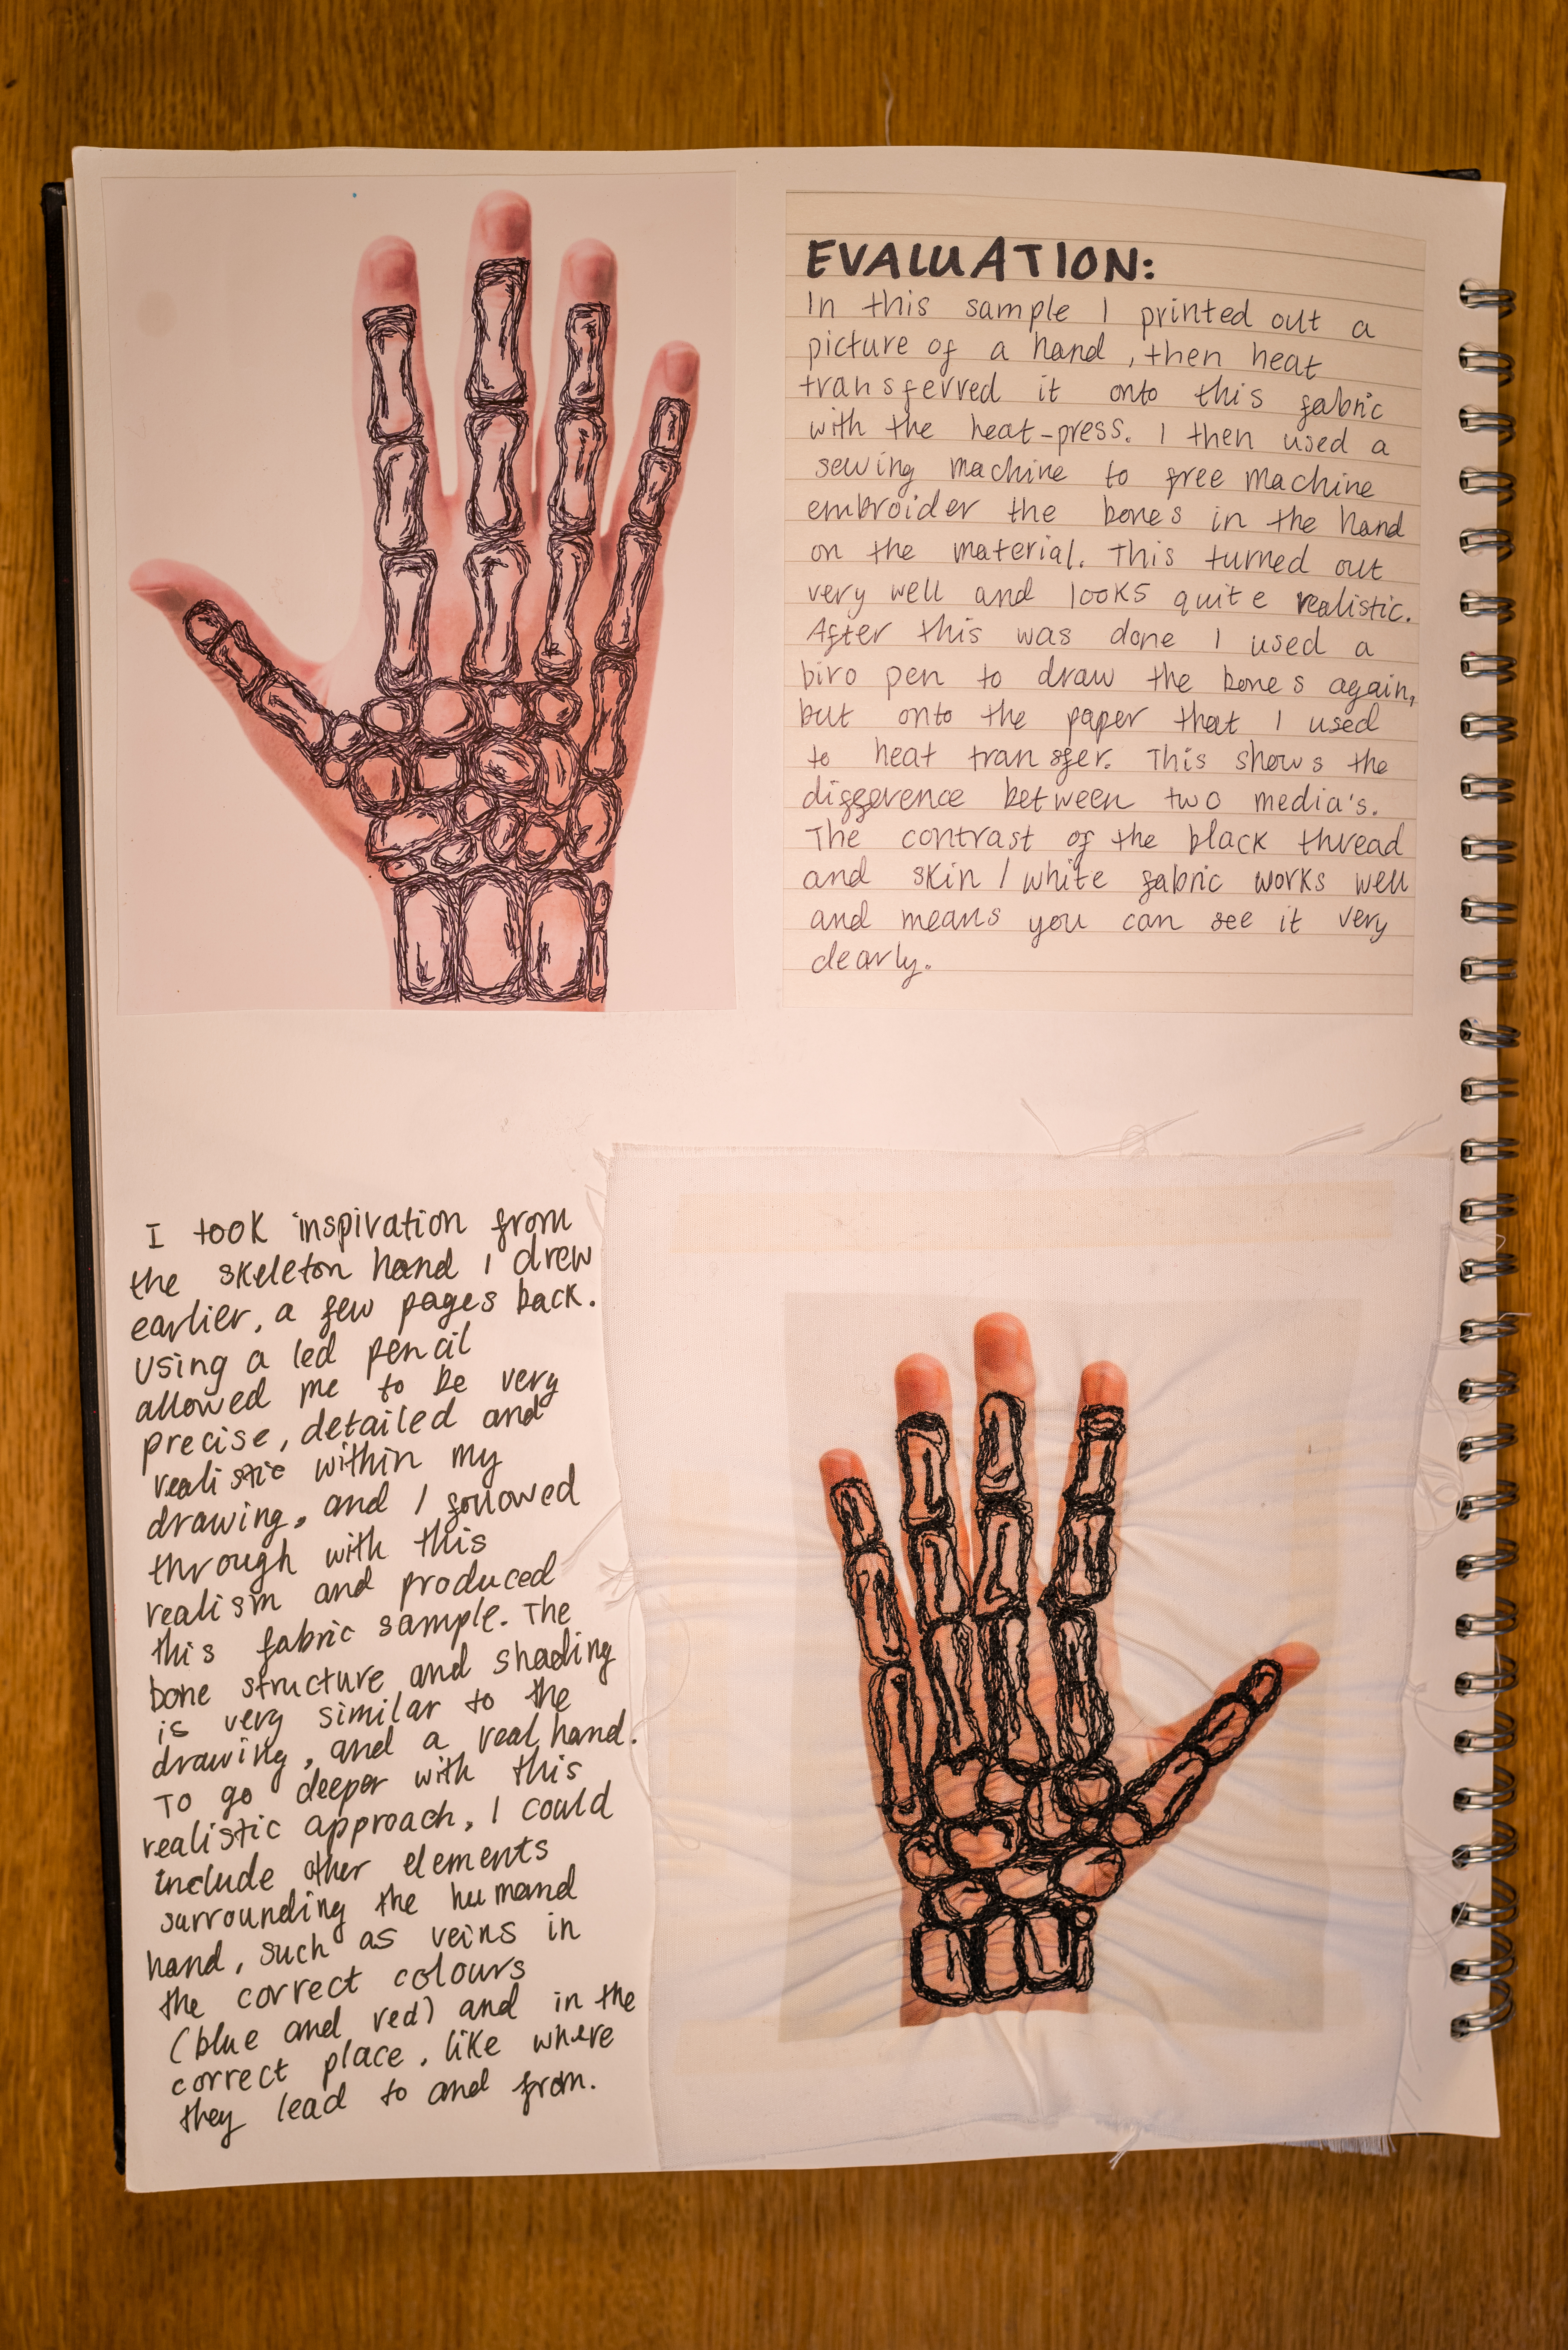 EVALUATION:
In this sample I printed out a
picture of a hand, then heat
transferred it onto this fabric
with the heat-press. I then used a
sewing machine to free machine
embroider the bones in the hand
on the material. This turned out
very well and looks quite realistic.
After this was done I used a
biro pen to draw the bones again,
but onto the paper that I used
to heat transfer. This shows the
difference between two media's.
The contrast of the black thread
and skin / white fabric works well
and means you can see it very
clearly.
I took inspiration from
the skeleton hand I drew
earlier, a few pages back.
Using a led pencil
allowed me to be very
precise, detailed and
realistic within my
drawing, and I followed
through with this
realism and produced
this fabric sample. The
bone structure and shading
is very similar to the
drawing, and a real hand.
To go deeper with this
realistic approach, I could
include other elements
surrounding the humand
hand, such as veins in
the correct colours
(blue and red) and in the
correct place, like where
they lead to and from.